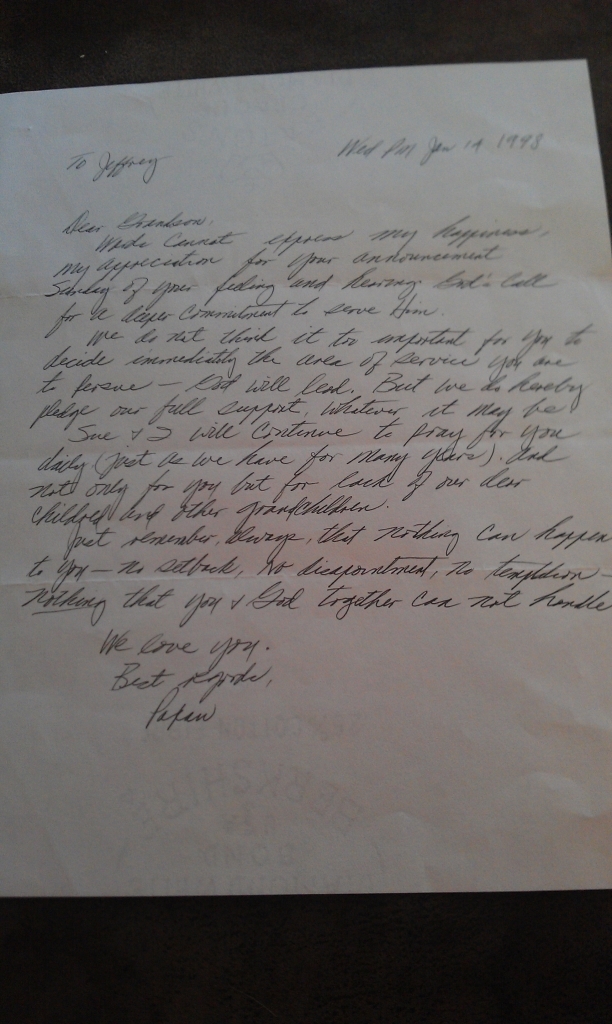 Wed PM Jan 14 1998
To Jeffrey
Dear Grandson,
Words cannot express my happiness,
my appreciation for your announcement
Sunday of your feeling and hearing God's call
for a deeper commitment to serve Him.
We do not think it too important for you to
decide immediately the area of service you are
to persue — God will lead. But we do hereby
pledge our full support, whatever it may be
Sue & I will continue to pray for you
daily (just as we have for many years). And
not only for you but for each of our dear
children and other grandchildren.
Just remember, always, that nothing can happen
to you — no setback, no disapointment, no temptation —
nothing that you & God together can not handle
We love you.
Best regards,
Papaw
BERKSHIRE
BOND